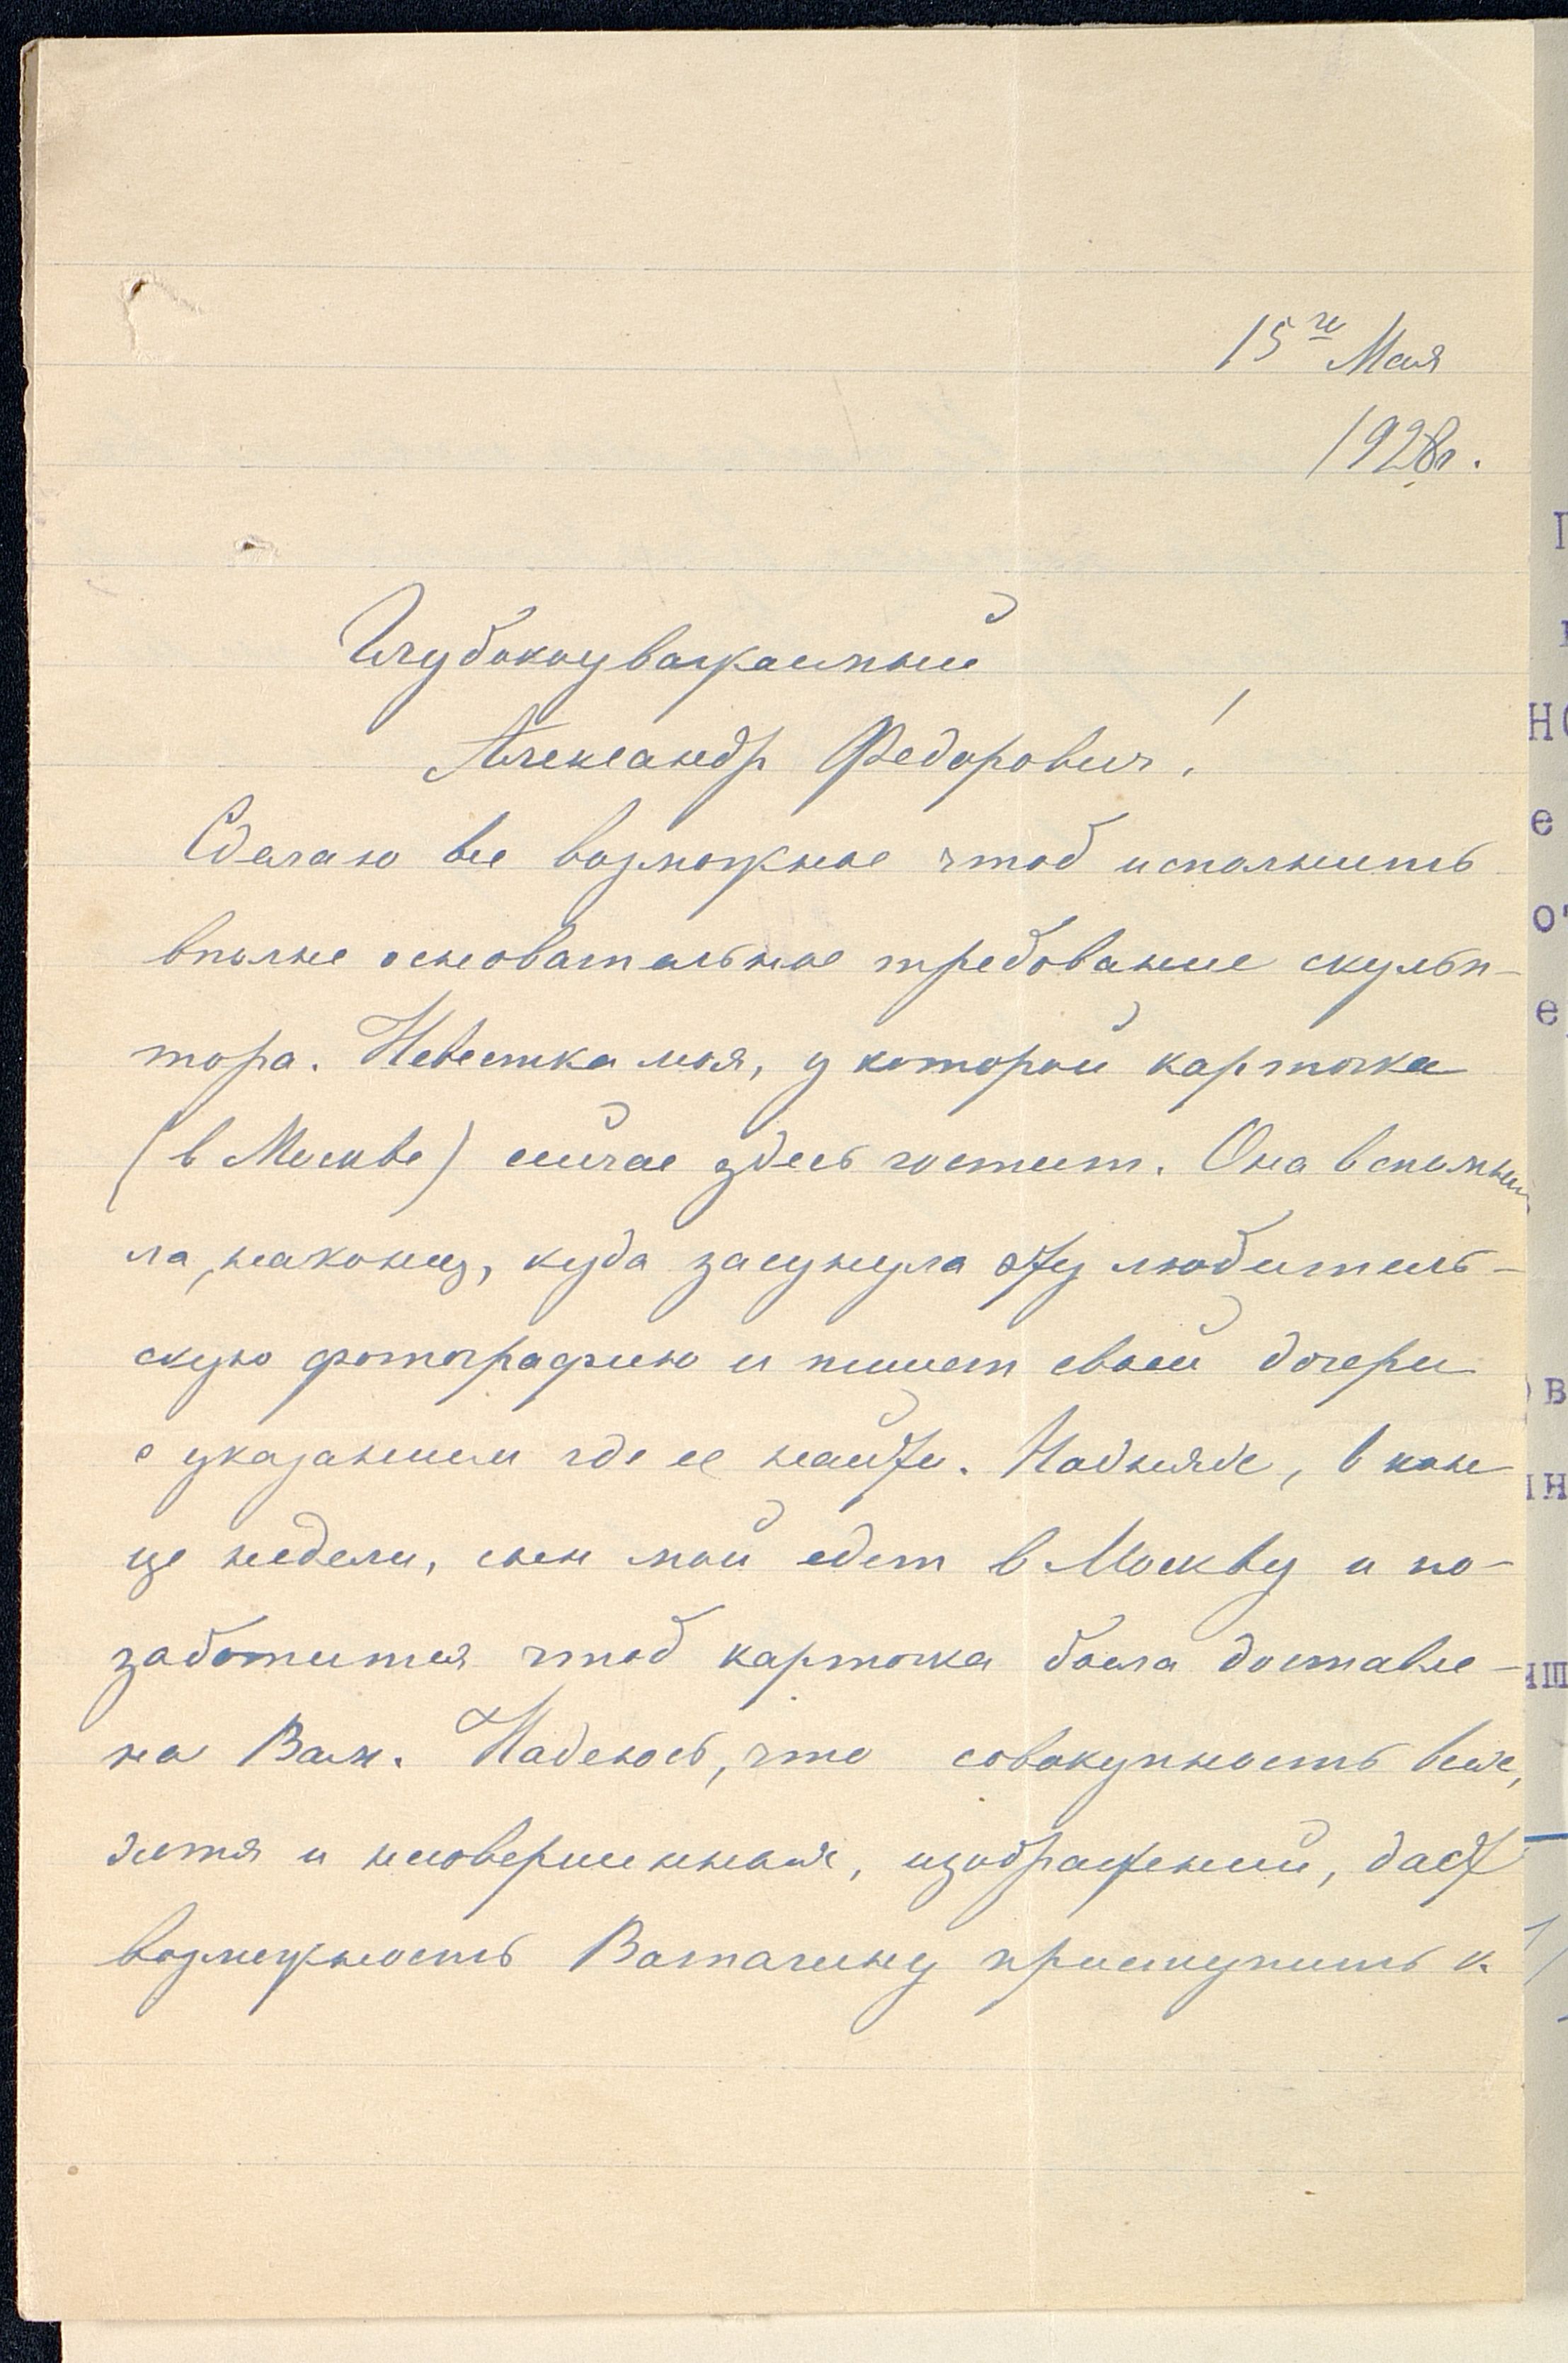 15го Мая
1928г.
Глубокоуважаемый
Александр Федорович!
Сделаю все возможное чтоб исполнить
вполне основательное требование скульп-
тора. Невестка моя, у которой карточка
(в Москве) сейчас здесь гостит. Она вспомни
ла, наконец, куда засунула эту любитель-
скую фотографию и пишет своей дочери
с указанием где ее найти. На днях, в кон
це недели, сын мой едет в Москву и по-
заботится чтоб карточка была доставле-
на Вам. Надеюсь, что совокупность всех,
хотя и несовершенных, изображений, даст
возможность Ватагину приступить к